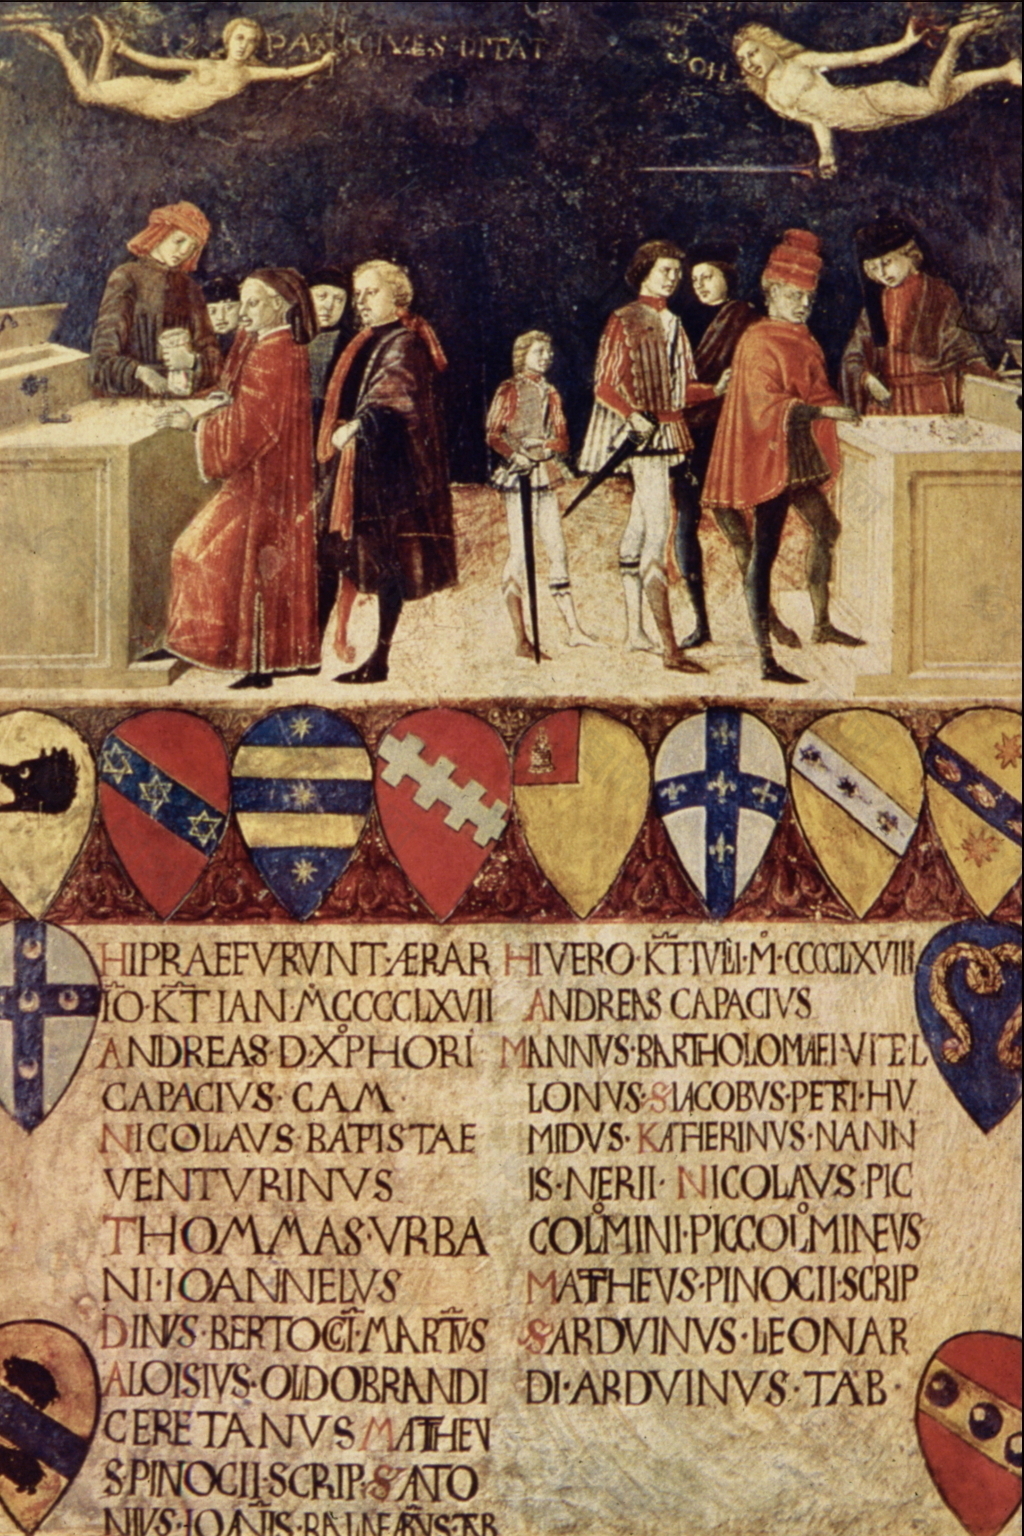 PAX CIVES DITAT
HI PRAEFVRVNT·ÆRAR
IO·KT IAN·M̊CCCCLXVII
ANDREAS·D·XP̊HORI
CAPACIVS·CAM·
NICOLAVS·BATISTAE
VENTVRINVS
THOMMAS·VRBA
NI·IOANNELVS
DINVS·BERTOCCI·MARTIVS
ALOISIVS·OLDOBRANDI
CERETANVS MATHEV
S·PINOCII·SCRIP·S·ATO
NIVS·IOANIS·
HI VERO·KT·IVLII·M̊·CCCCLXVIII
ANDREAS CAPACIVS
MANNVS·BARTHOLOMAEI·VITEL
LONVS·S·IACOBVS·PETRI·HV
MIDVS·KATHERINVS·NANN
IS·NERII·NICOLAVS·PIC
COLM̊INI·PICCOLM̊INEVS
MATHEVS·PINOCII·SCRIP
S·ARDVINVS·LEONAR
DI·ARDVINVS·TAB·